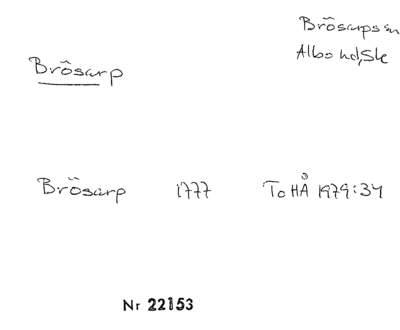 Brösarps sn
Albo hd, Sk
Brösarp
Brösarp 1777 To HÅ 1979:34
Nr 22153